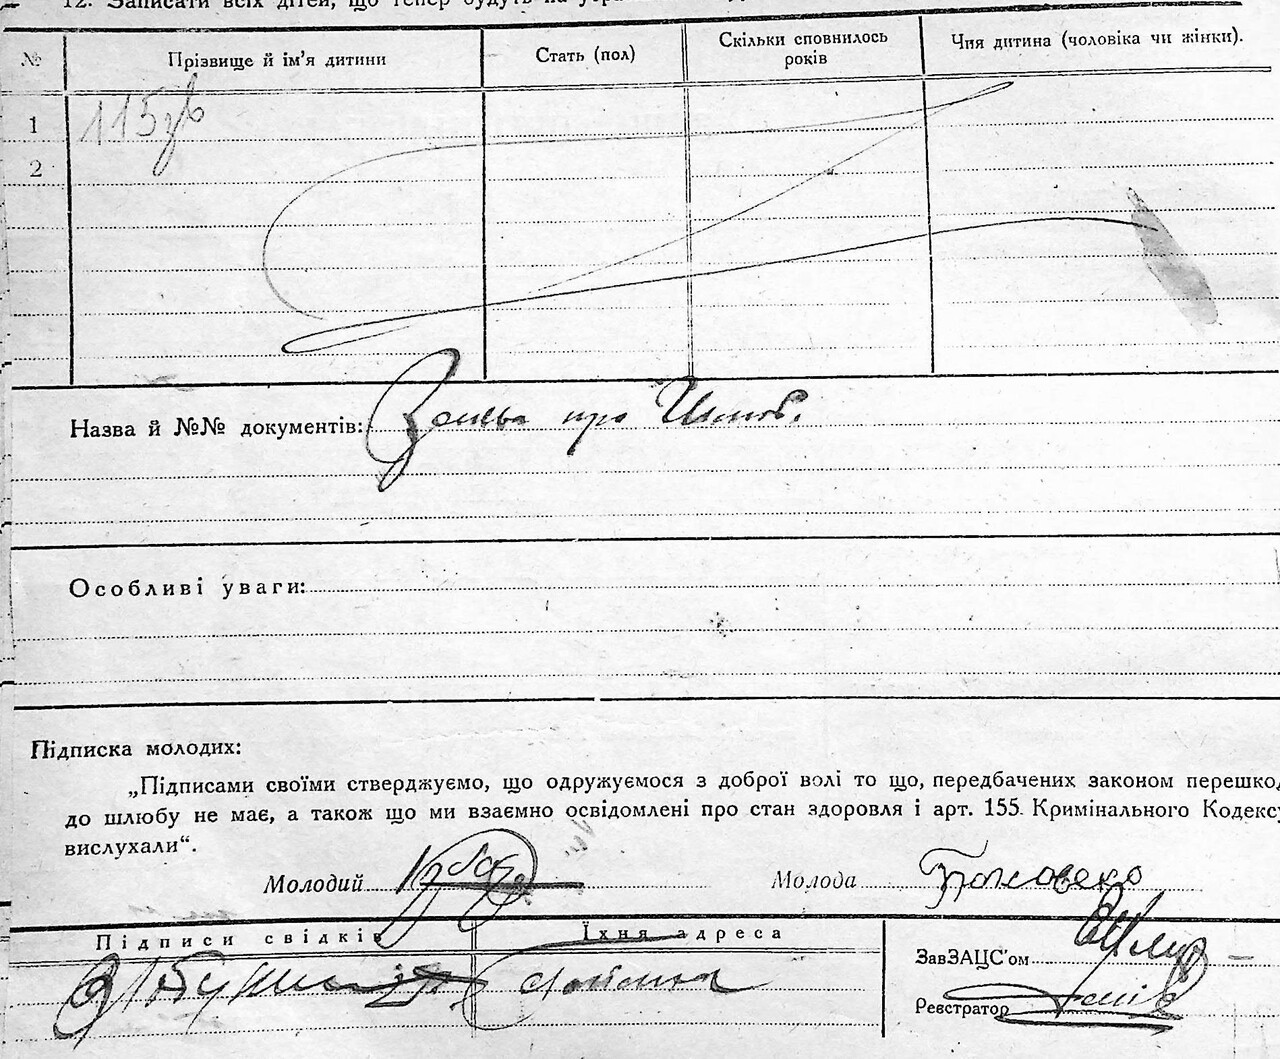 12. Записати всіх дітей, що тепер будуть на
№ Прізвище й ім'я дитини Стать (пол) Скільки сповнилось років Чия дитина (чоловіка чи жінки).
1 115
2
Назва й №№ документів: про
Особливі уваги:
Підписка молодих:
„Підписами своїми стверджуємо, що одружуємося з доброї волі то що, передбачених законом перешкод
до шлюбу не має, а також що ми взаємно освідомлені про стан здоровля і арт. 155. Кримінального Кодексу
вислухали“.
Молодий Молода
Підписи свідків Їхня адреса
ЗавЗАЦС'ом
Реєстратор